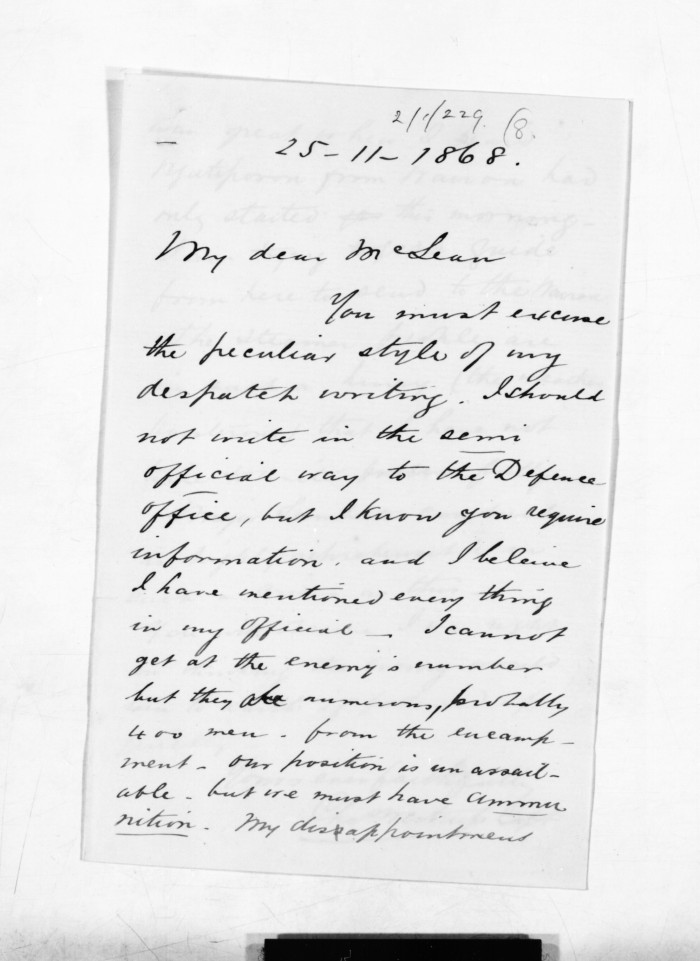 2/1/229. (8.
25-11-1868.
My dear McLean
You must excuse
the peculiar style of my
despatch writing. I should
not write in the semi
official way to the Defence
office, but I know you require
information. and I beleive
I have mentioned every thing
in my official - I cannot
get at the enemy's number
but they are numerous, probably
400 men - from the encamp-
ment - our position is unassail-
able - but we must have ammu
nition. My disappointment